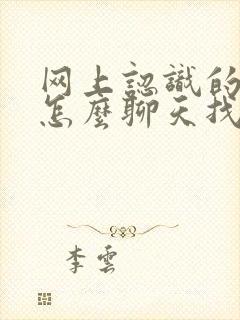 网上認識的
怎麼聊天找
李雲